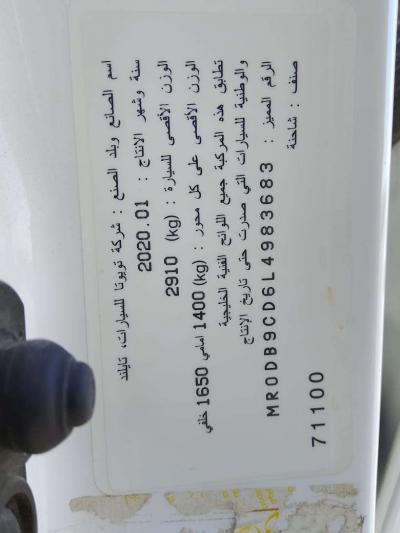 اسم الصانع وبلد الصنع : شركة تويوتا للسيارات، تايلند
سنة وشهر الانتاج : 2020.01
الوزن الأقصى للسيارة : (kg) 2910
الوزن الأقصى على كل محور : (kg) 1400 امامي 1650 خلفي
تطابق هذه المركبة جميع اللوائح الفنية الخليجية
والوطنية للسيارات التي صدرت حتى تاريخ الإنتاج
الرقم المميز : MR0DB9CD6L4983683
صنف : شاحنة
71100